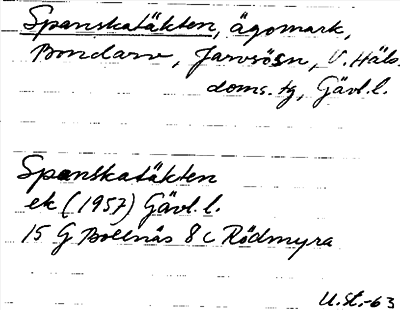 Spanskatäkten, ägomark,
Bondarv, Järvsösn, V. Häls.
doms. tg, Gävl. l.
Spanskatäkten
ek (1957) Gävl. l.
15 G Bollnäs 8 c Rödmyra
U.St.-63